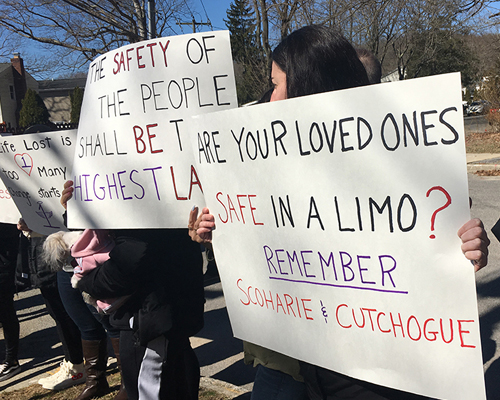 Life Lost is
too Many
Change starts
THE SAFETY OF
THE PEOPLE
SHALL BE T
HIGHEST LA
ARE YOUR LOVED ONES
SAFE IN A LIMO?
REMEMBER
SCOHARIE & CUTCHOGUE